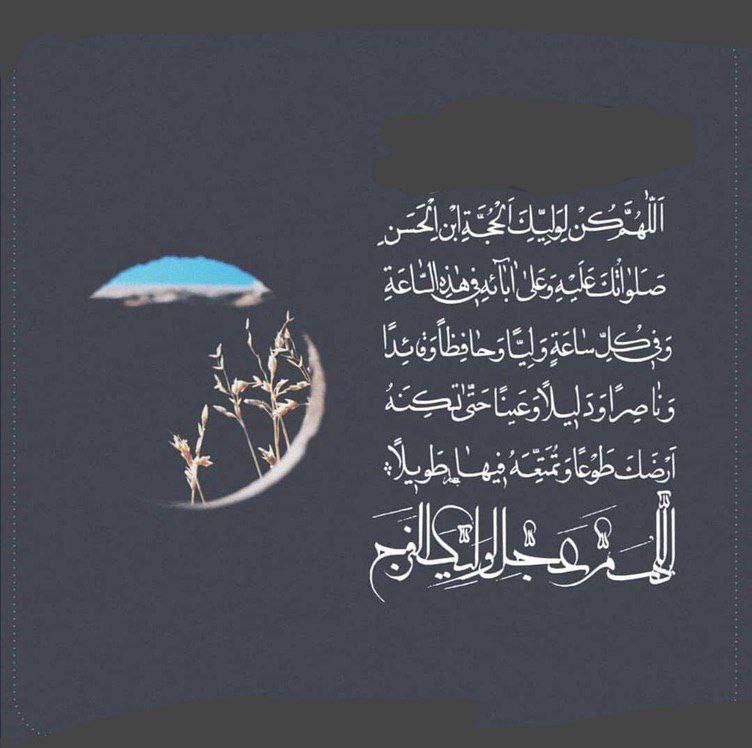 اَللّٰهُمَّ كُنْ لِوَلِيِّكَ اَلْحُجَّةِ ابْنِ الْحَسَنِ
صَلَوٰاتُكَ عَلَيْهِ وَعَلىٰ اٰبٰٓائِهِ فِي هٰذِهِ السّٰاعَةِ
وَفِي كُلِّ سٰاعَةٍ وَلِيًّا وَحٰافِظاً وَقٰائِدًا
وَنٰاصِرًا وَدَلِيلاً وَعَينًا حَتّىٰ تُسْكِنَهُ
اَرْضَكَ طَوْعًا وَتُمَتِّعَهُ فِيهٰا طَوِيلاً
اللّٰهم عجل لوليك الفرج